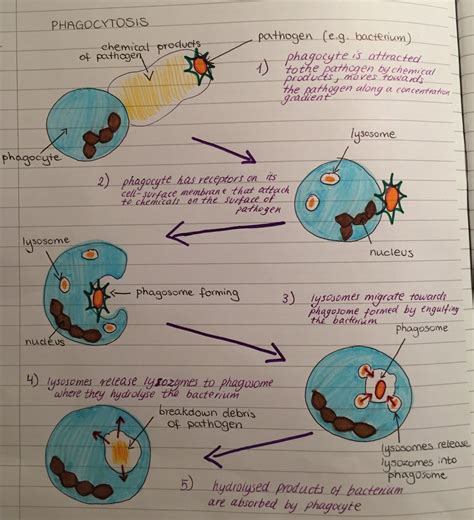 PHAGOCYTOSIS
chemical products
of pathogen
pathogen (e.g. bacterium)
1) phagocyte is attracted
to the pathogen by chemical
products, moves towards
the pathogen along a concentration
gradient
phagocyte
lysosome
2) phagocyte has receptors on its
cell-surface membrane that attach
to chemicals on the surface of
pathogen
nucleus
lysosome
phagosome forming
nucleus
3) lysosomes migrate towards
phagosome formed by engulfing
the bacterium
phagosome
4) lysosomes release lysozymes to phagosome
where they hydrolyse the bacterium
breakdown debris
of pathogen
lysosomes release
lysozomes into
phagosome
5) hydrolysed products of bacterium
are absorbed by phagocyte